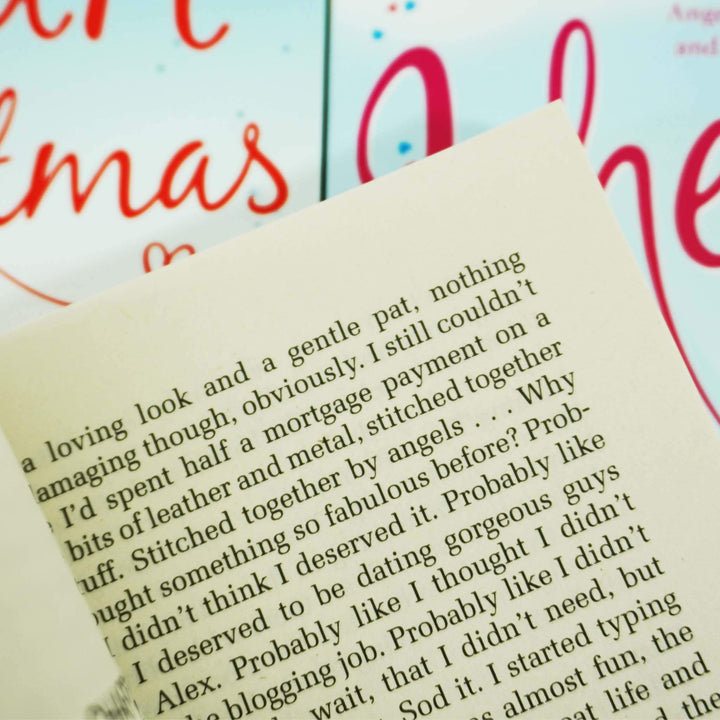 art
tmas
I he
Ange
and
a loving look and a gentle pat, nothing
amaging though, obviously. I still couldn't
I'd spent half a mortgage payment on a
bits of leather and metal, stitched together
uff. Stitched together by angels . . . Why
ought something so fabulous before? Prob-
I didn't think I deserved it. Probably like
I deserved to be dating gorgeous guys
Alex. Probably like I thought I didn't
blogging job. Probably like I didn't
wait, that I didn't need, but
Sod it. I started typing
almost fun, the
at life and
the